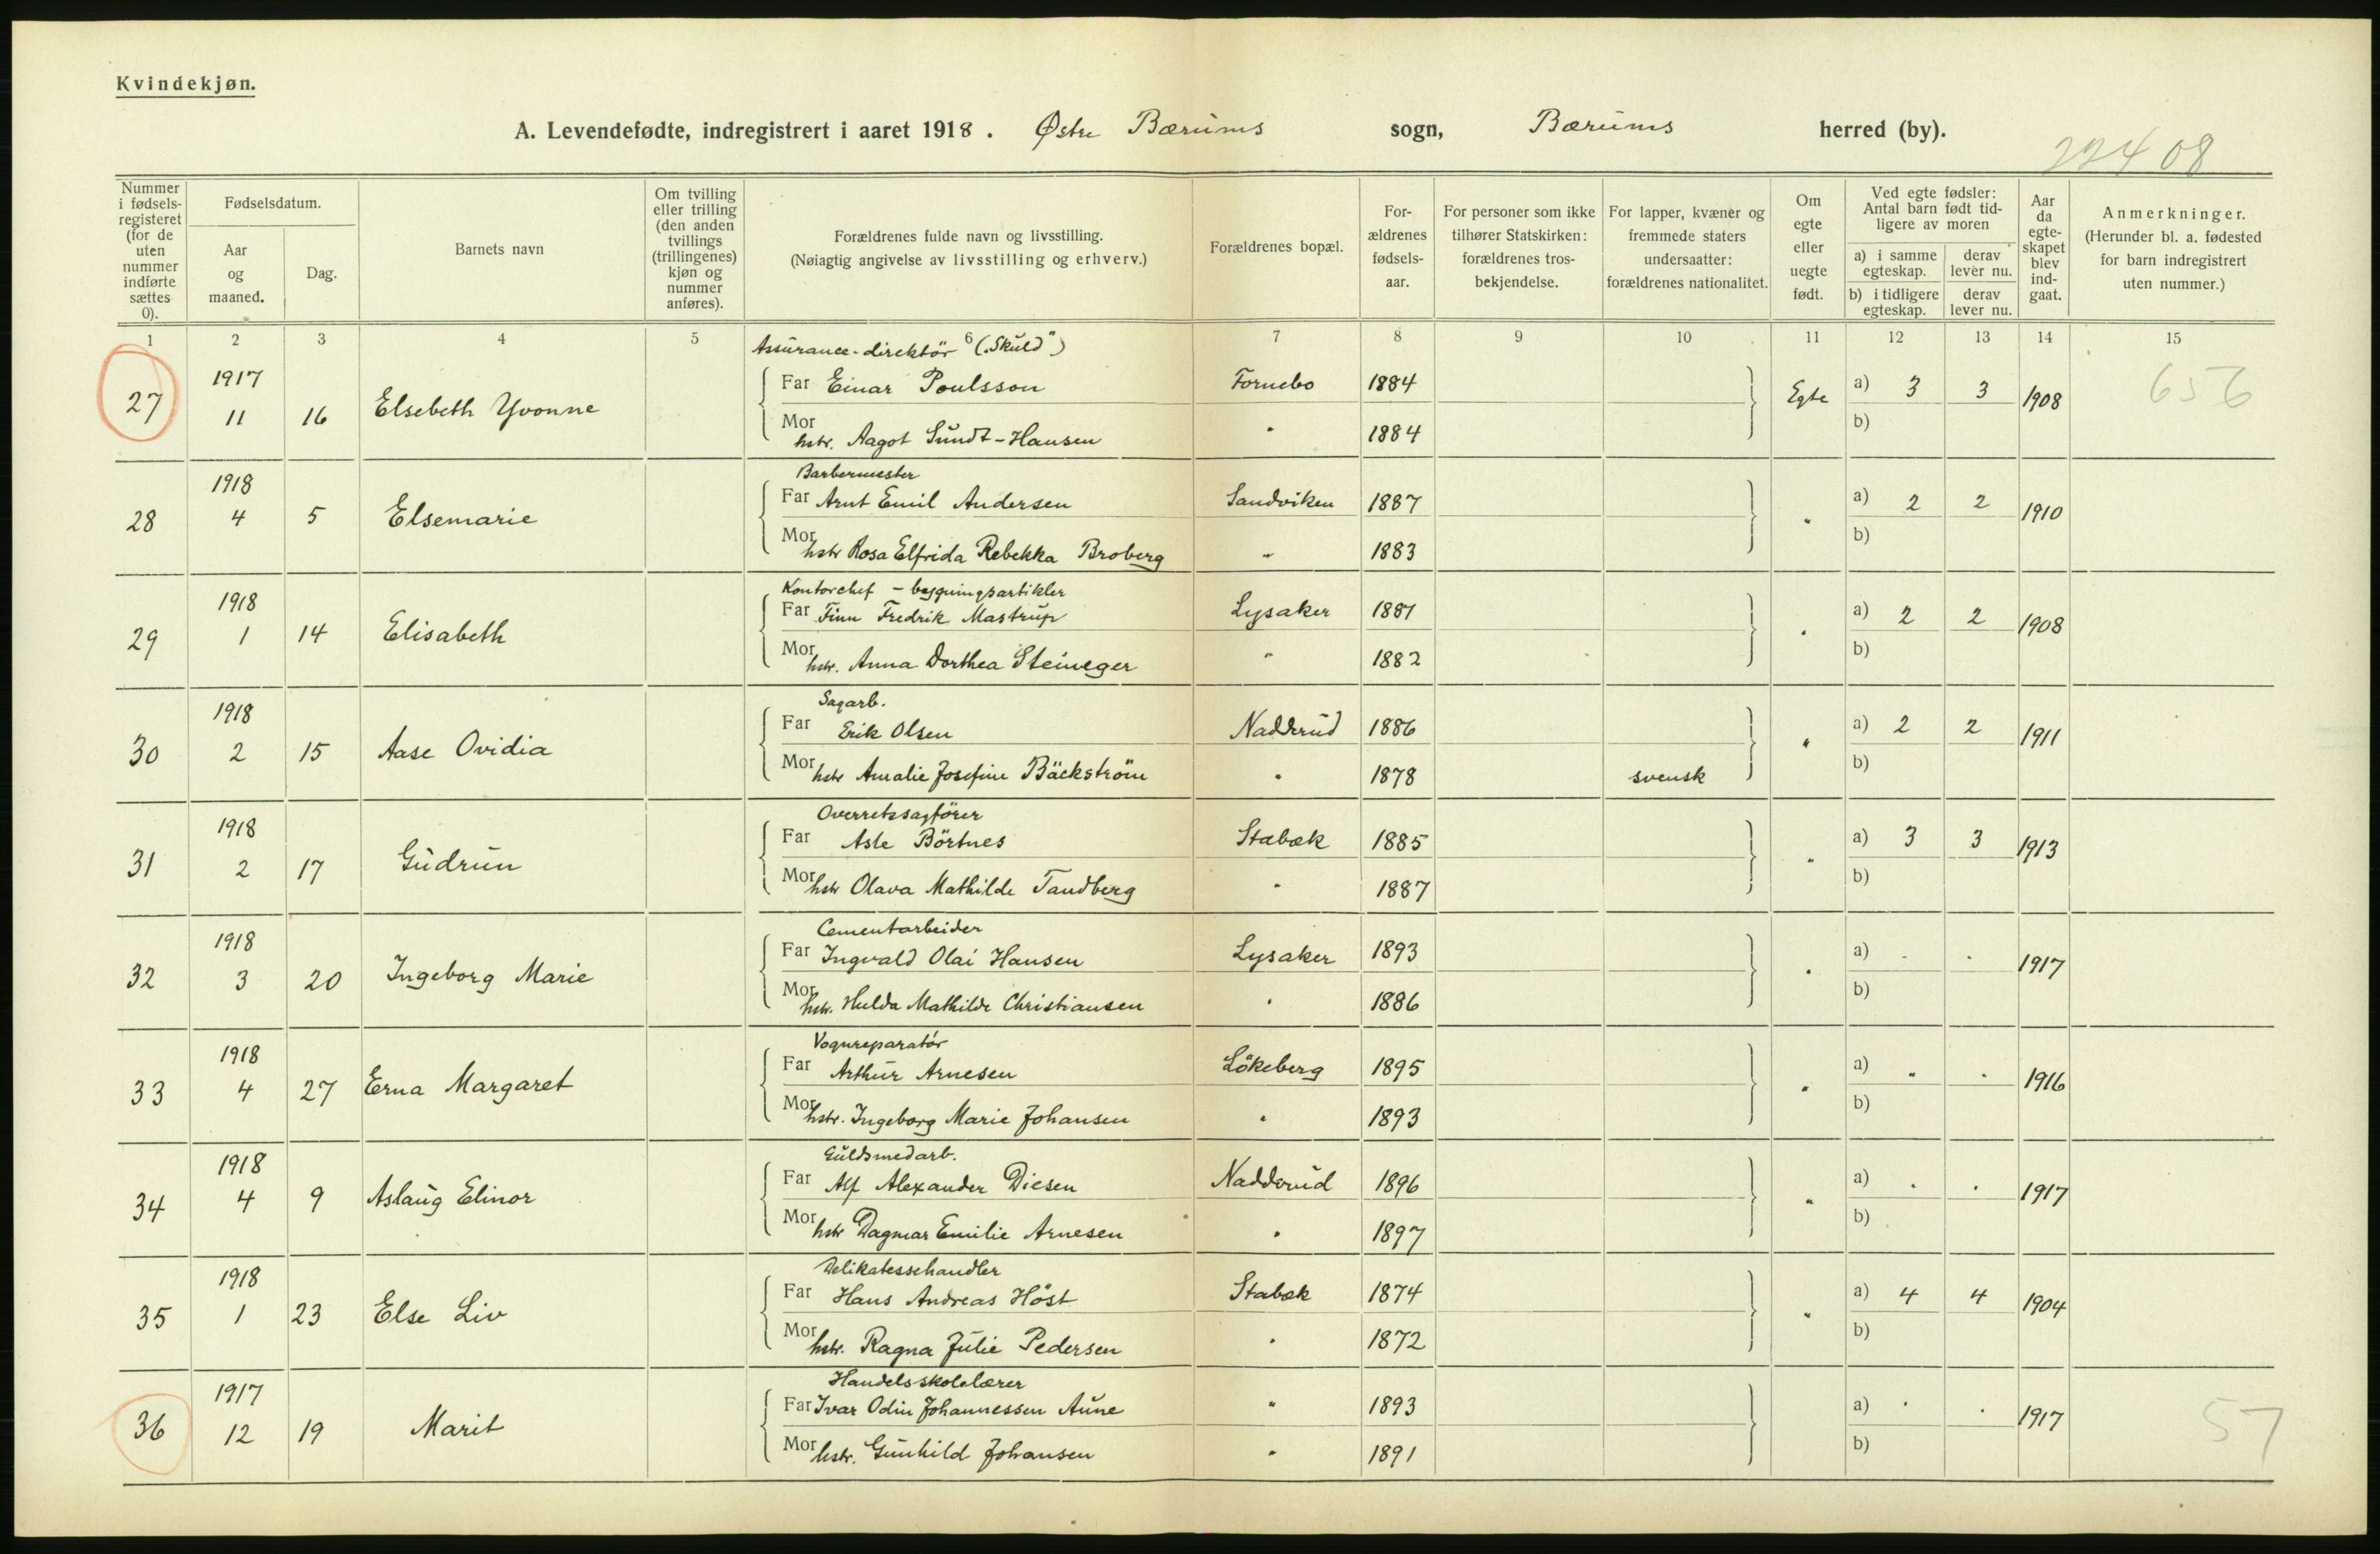 Kvindekjøn.
A. Levendefødte, indregistrert i aaret 1918. Østre Bærums sogn, Bærums herred (by).
22408
Nummer i fødselsregisteret (for de uten nummer indførte sættes 0).
Fødselsdatum.
Aar og maaned.
Dag.
Barnets navn
Om tvilling eller trilling (den anden tvillings (trillingenes) kjøn og nummer anføres).
Forældrenes fulde navn og livsstilling.
(Nøiagtig angivelse av livsstilling og erhverv.)
Forældrenes bopæl.
Forældrenes fødselsaar.
For personer som ikke tilhører Statskirken: forældrenes trosbekjendelse.
For lapper, kvæner og fremmede staters undersaatter: forældrenes nationalitet.
Om egte eller uegte født.
Ved egte fødsler: Antal barn født tidligere av moren
a) i samme egteskap.
derav lever nu.
b) i tidligere egteskap.
derav lever nu.
Aar da egteskapet blev indgaat.
Anmerkninger.
(Herunder bl. a. fødested for barn indregistrert uten nummer.)
1 2 3 4 5 6 7 8 9 10 11 12 13 14 15
Assurance-direktör ("Skuld")
27 1917 11 16 Elsebeth Yvonne Far Einar Poulsson Fornebo 1884 Egte a) 3 3 1908 656
Mor hstr. Aagot Sundt-Hansen " 1884 b)
Barbermester
28 1918 4 5 Elsemarie Far Arnt Emil Andersen Sandviken 1887 " a) 2 2 1910
Mor hstr Rosa Elfrida Rebekka Broberg " 1883 b)
Kontorchef - bygningsartikler
29 1918 1 14 Elisabeth Far Finn Fredrik Mastrup Lysaker 1881 " a) 2 2 1908
Mor hstr. Anna Dorthea Steineger " 1882 b)
Sagarb.
30 1918 2 15 Aase Ovidia Far Erik Olsen Nadderud 1886 " a) 2 2 1911
Mor hstr Amalie Josefine Bäckström " 1878 svensk b)
Overretssagförer
31 1918 2 17 Gudrun Far Asle Börtnes Stabæk 1885 " a) 3 3 1913
Mor hstr Olava Mathilde Tandberg " 1887 b)
Cementarbeider
32 1918 3 20 Ingeborg Marie Far Ingvald Olai Hansen Lysaker 1893 " a) . . 1917
Mor hstr. Hulda Mathilde Christiansen " 1886 b)
Vognreparatör
33 1918 4 27 Erna Margaret Far Arthur Arnesen Lökeberg 1895 " a) " . 1916
Mor hstr. Ingeborg Marie Johansen " 1893 b)
Guldsmedarb.
34 1918 4 9 Aslaug Elinor Far Alf Alexander Diesen Nadderud 1896 " a) . . 1917
Mor hstr Dagmar Emilie Arnesen " 1897 b)
Delikatessehandler
35 1918 1 23 Else Liv Far Hans Andreas Höst Stabæk 1874 " a) 4 4 1904
Mor hstr. Ragna Julie Pedersen " 1872 b)
Handelsskolelærer
36 1917 12 19 Marit Far Ivar Odin Johannessen Aune " 1893 a) . . 1917 57
Mor hstr. Gunhild Johansen " 1891 b)